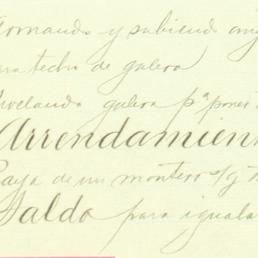 formando y subiendo
para techo de galera
nivelando galera pª poner
Arrendamien
Raya de un montero s/g
Saldo para iguala